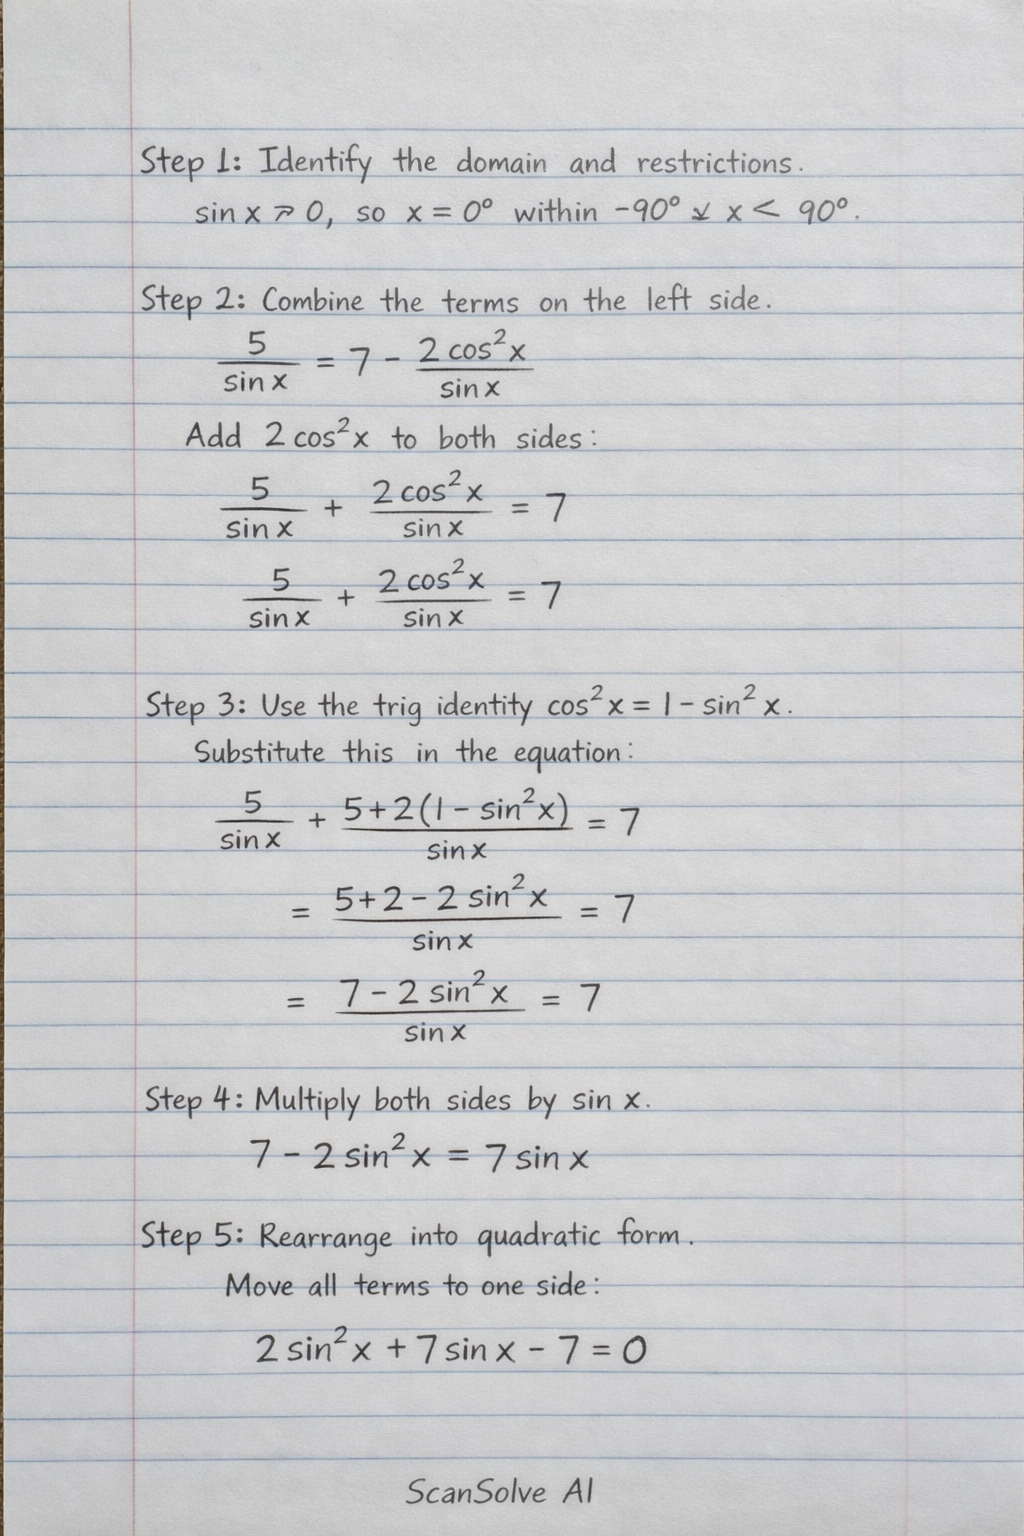 Step 1: Identify the domain and restrictions.
sin x ⩾ 0, so x = 0° within -90° ⩽ x < 90°.
Step 2: Combine the terms on the left side.
5/sin x = 7 - 2 cos²x/sin x
Add 2 cos²x to both sides:
5/sin x + 2 cos²x/sin x = 7
5/sin x + 2 cos²x/sin x = 7
Step 3: Use the trig identity cos²x = 1 - sin² x.
Substitute this in the equation:
5/sin x + 5+2(1 - sin²x)/sin x = 7
= 5+2-2 sin²x/sin x = 7
= 7-2 sin²x/sin x = 7
Step 4: Multiply both sides by sin x.
7 - 2 sin²x = 7 sin x
Step 5: Rearrange into quadratic form.
Move all terms to one side:
2 sin²x + 7 sin x - 7 = 0
ScanSolve AI